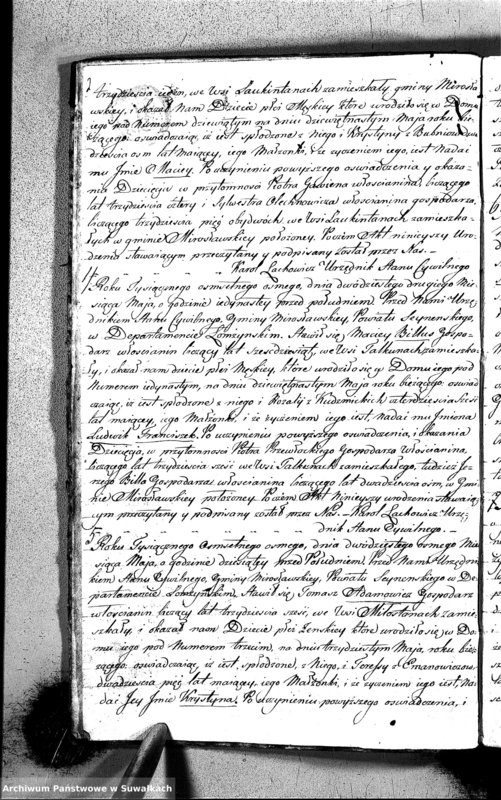 trzydzieścia ieden, we Wsi Laukintanach zamieszkały, gminy Mirosła
wskiey, i okazał Nam Dziecie płci Męskiey które urodziło się w Domu
iego pod Numerem dziewiątym na dniu dziewiętnastym Maja roku bie
żącego: oświadczaiąc, iż iest spłodzone z niego i Krystyny z dwu
dziestu ośm lat maiącey, iego Małżonki, i że życzeniem iego iest, nadać
mu Jmie Maciey. Po uczynieniu powyższego oświadczenia y okaza
nia Dziecięcia w przytomności Piotra włościanina, liczącego
lat trzydzieści cztery i Sylwestra Olechnowicza włościanina gospodarza,
liczącego trzydzieścia pięć obydwóch, we Wsi Laukintanach, zamieszka
łych w gminie Mirosławskiey położoney. Poczem Akt ninieyszy Uro
dzenia stawaiącym przeczytany y podpisany został przez Nas.
Karol Lachowicz Urzędnik Stanu Cywilnego
4 Roku Tysiącznego osmsetnego osmego, dnia dwudziestego drugiego Mie
siąca Maja, o godzinie iedynastey przed południem. Przed Nami Urzę
dnikiem Stanu Cywilnego, Gminy Mirosławskiey, Powiatu Seynenskiego,
w Departamencie Łomżynskim. Stawił się Maciey Billus Gospo
darz włościanin liczący lat Sześćdziesiąt, we Wsi Talkunach zamieszka
ły, i okazał nam dziecie płci Męskiey, które urodziło się w Domu iego pod
Numerem iedynastym, na dniu dziewiętnastym Maja roku bieżącego: oświad
czaiąc, iż iest spłodzone z niego i Rozalij z czterdzieścia
lat maiącey, iego Małżonki, i że życzeniem iego iest, nadać mu Jmiona
Ludwik Franciszek. Po uczynieniu powyższego oświadczenia, i okazania
Dziecięcia, w przytomności Piotra Przewłockiego Gospodarza Włościanina,
liczącego lat trzydzieścia sześć we Wsi Talkunach zamieszkałego, tudzież Je
rzego Billa Gospodarza włościanina liczącego lat dwadzieścia ośm, w Gmi
nie Mirosławskiey położoney. Poczem Akt Ninieyszy urodzenia Stawaią
cym przeczytany y podpisany został przez Nas. Karol Lachowicz Urzę
dnik Stanu Cywilnego.
5 Roku Tysiącznego Osmsetnego osmego, dnia dwudziestego osmego Mie
siąca Maja, o godzinie dziesiątey przed Południem. Przed Nami Urzędni
kiem Stanu Cywilnego, Gminy Mirosławskiey, Powiatu Seynenskiego w De
partamencie Łomżynskim, Stawił się Tomasz Adamowicz Gospodarz
włościanin liczący lat trzydzieścia sześć, we Wsi Miłosłanach zamie
szkały, i okazał nam Dziecie płci Żenskiey które urodziło się w Do
mu iego pod Numerem trzecim, na dniu trzydziestym Maja, roku bie
żącego: oświadczaiąc, iż iest, spłodzone, z Niego, i Teressy z Emanowiczow,
dwadzieścia pięć lat maiącey, iego Małżonki, i że życzeniem iego iest, Na
dać Jey Jmie Krystyna. Po uczynieniu powyższego oświadczenia, i
Archiwum Państwowe w Suwałkach